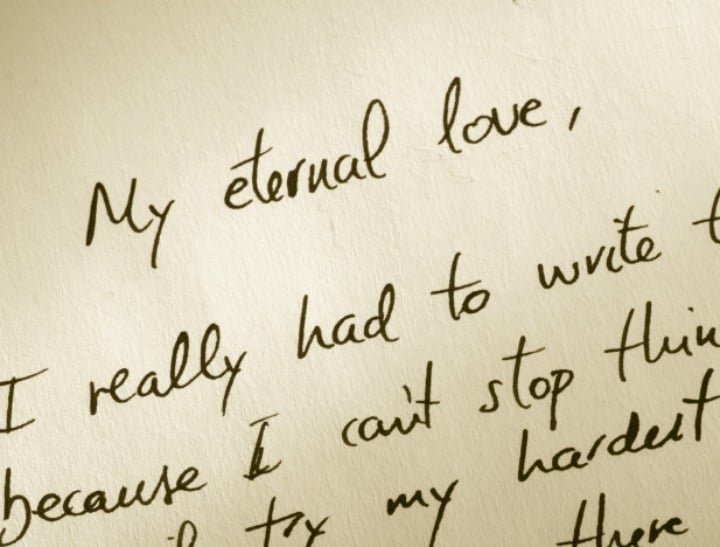 My eternal love,
I really had to write t
because I can't stop thin
try my hardest
there